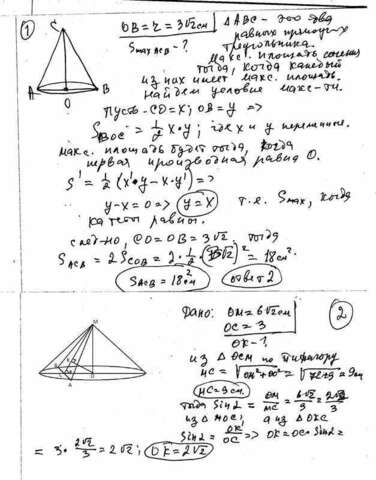 1
C
A
O
B
OB = r = 3√2 см
S max ACB - ?
△ABC - это два равных прямоуг-х
треугольника.
Макс. площадь сечения
тогда, когда каждый
из них имеет макс. площадь.
Найдем условие макс-ти.
Пусть CO = x; OB = y =>
S BOC = 1/2 x·y; где x и y перемен.
макс. площадь будет тогда, когда
первая производная равна 0.
S' = 1/2 (x'·y - x·y') =>
y - x = 0 => y = x т.е. Smax, когда
катеты равны.
след-но, CO = OB = 3√2. тогда
S ACB = 2 S COB = 2 · 1/2 · (3√2)² = 18 см².
S ACB = 18 см²
ответ 2
2
M
Дано: OM = 6√2 см
OC = 3
OK - ?
из △ OCM по Пифагору
MC = √OM² + OC² = √72+9 = 9 см
MC = 9 см.
тогда Sin α = OM/MC = 6√2/9 = 2√2/3
из △ MOC; а из △ OKC
Sin α = OK/OC => OK = OC · Sin α =
= 3 · 2√2/3 = 2√2; OK = 2√2